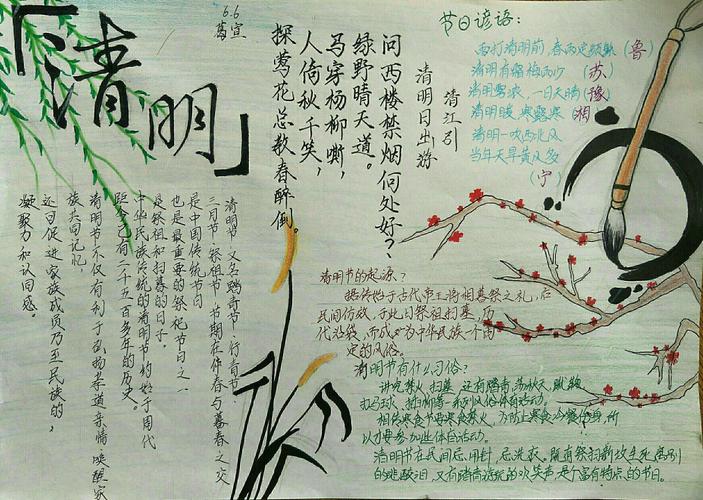 「清明」
6.6
葛宣
清江引
清明日出游
问西楼禁烟何处好？
绿野晴天道。
马穿杨柳嘶，
人倚秋千笑，
探莺花总教春醉倒。
节日谚语：
雨打清明前，春雨定频繁（鲁）
清明有霜梅雨少（苏）
清明雾浓，一日天晴（豫）
清明暖，寒露寒（湘）
清明一吹西北风
当年天旱黄风多
（宁）
清明节，又名踏青节、行清节、
三月节、祭祖节，节期在仲春与暮春之交
是中国传统节日
也是最重要的祭祀节日之一
是祭祖和扫墓的日子，
中华民族传统的清明节约始于周代
距今已有二千五百多年的历史。
清明节不仅有利于弘扬孝道亲情、唤醒家
族共同记忆
还可促进家族成员乃至民族的，
凝聚力和认同感。
清明节的起源？
据传始于古代帝王将相墓祭之礼，后
民间仿效，于此日祭祖扫墓，历
代沿袭，而成为中华民族一个固
定的风俗。
清明节有什么习俗？
讲究禁火、扫墓，还有踏青、荡秋千、蹴鞠
打马球、插柳等一系列风俗体育活动。
相传寒食节要寒食禁火，为防止寒食冷餐伤身，所
以大家参加些体育活动。
的悲酸泪，又有踏青游玩的欢笑声，是个富有特点的节日。